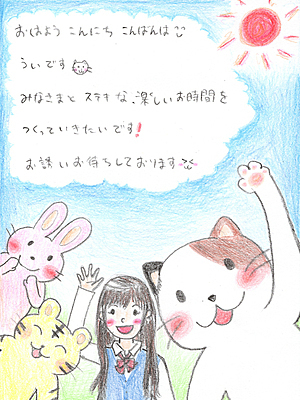 おはよう こんにち こんばんは
ういです
みなさまと ステキな、楽しいお時間を
つくっていきたいです!
お誘いお待ちしております